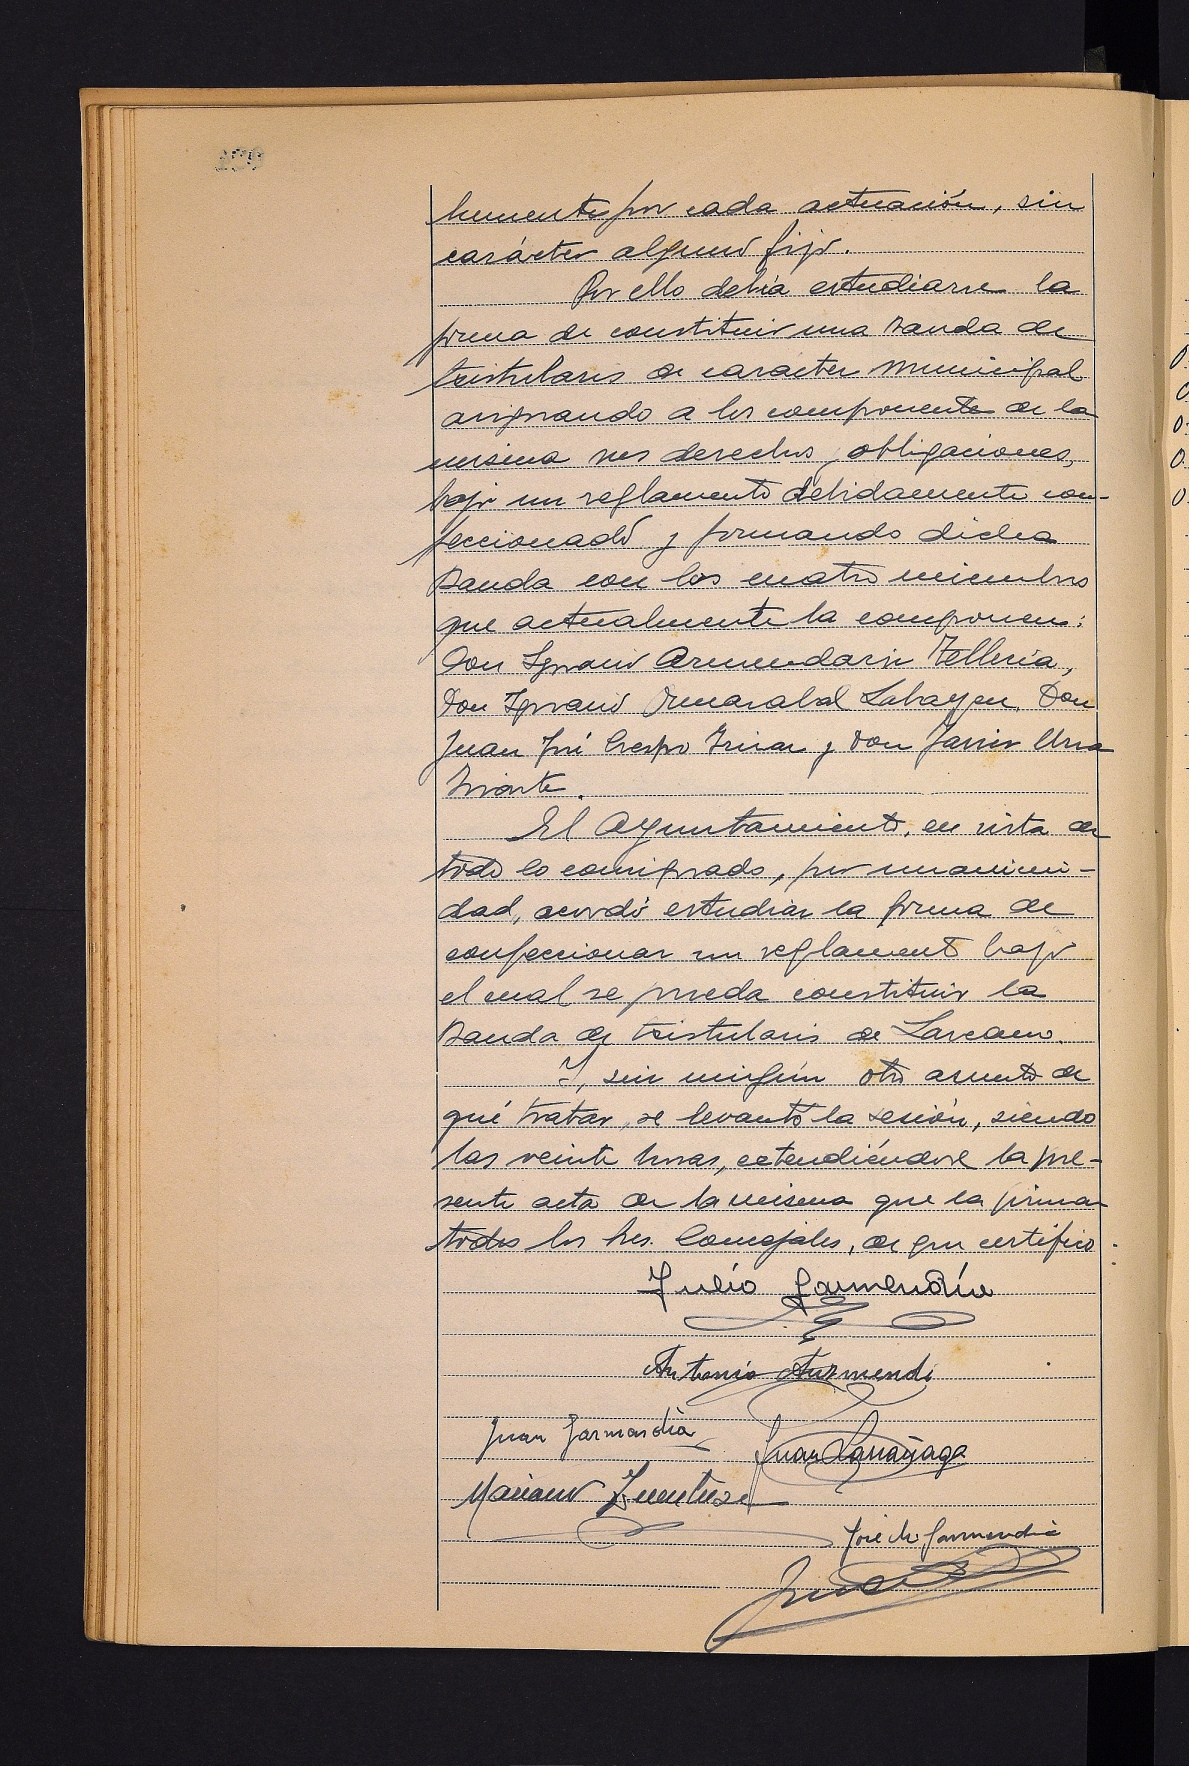 lumente por cada actuación, sin
carácter alguno fijo.
Por ello debía estudiarse la
forma de constituir una Banda de
txistularis de carácter municipal
asignando a los componentes de la
misma sus derechos, obligaciones,
bajo un reglamento debidamente con-
feccionado y formando dicha
Banda con los cuatro miembros
que actualmente la componen:
Don Ignacio Armendariz Tellería,
Don Ignacio Ormazabal Labayen, Don
Juan José Crespo Iriar y Don Javier Urra
Iriarte.
El Ayuntamiento, en vista de
todo lo consignado, por unanimi-
dad, acordó estudiar la forma de
confeccionar un reglamento bajo
el cual se pueda constituir la
Banda de txistularis de Lazcano.
Y, sin ningún otro asunto de
qué tratar, se levantó la sesión, siendo
las veinte horas, extendiéndose la pre-
sente acta de la misma que la firman
todos los Sres. Concejales, de que certifico.
Julio Garmendia
Antonio Aurmendi
Juan Garmendia Juan Larrañaga
Mariano
José M. Garmendia